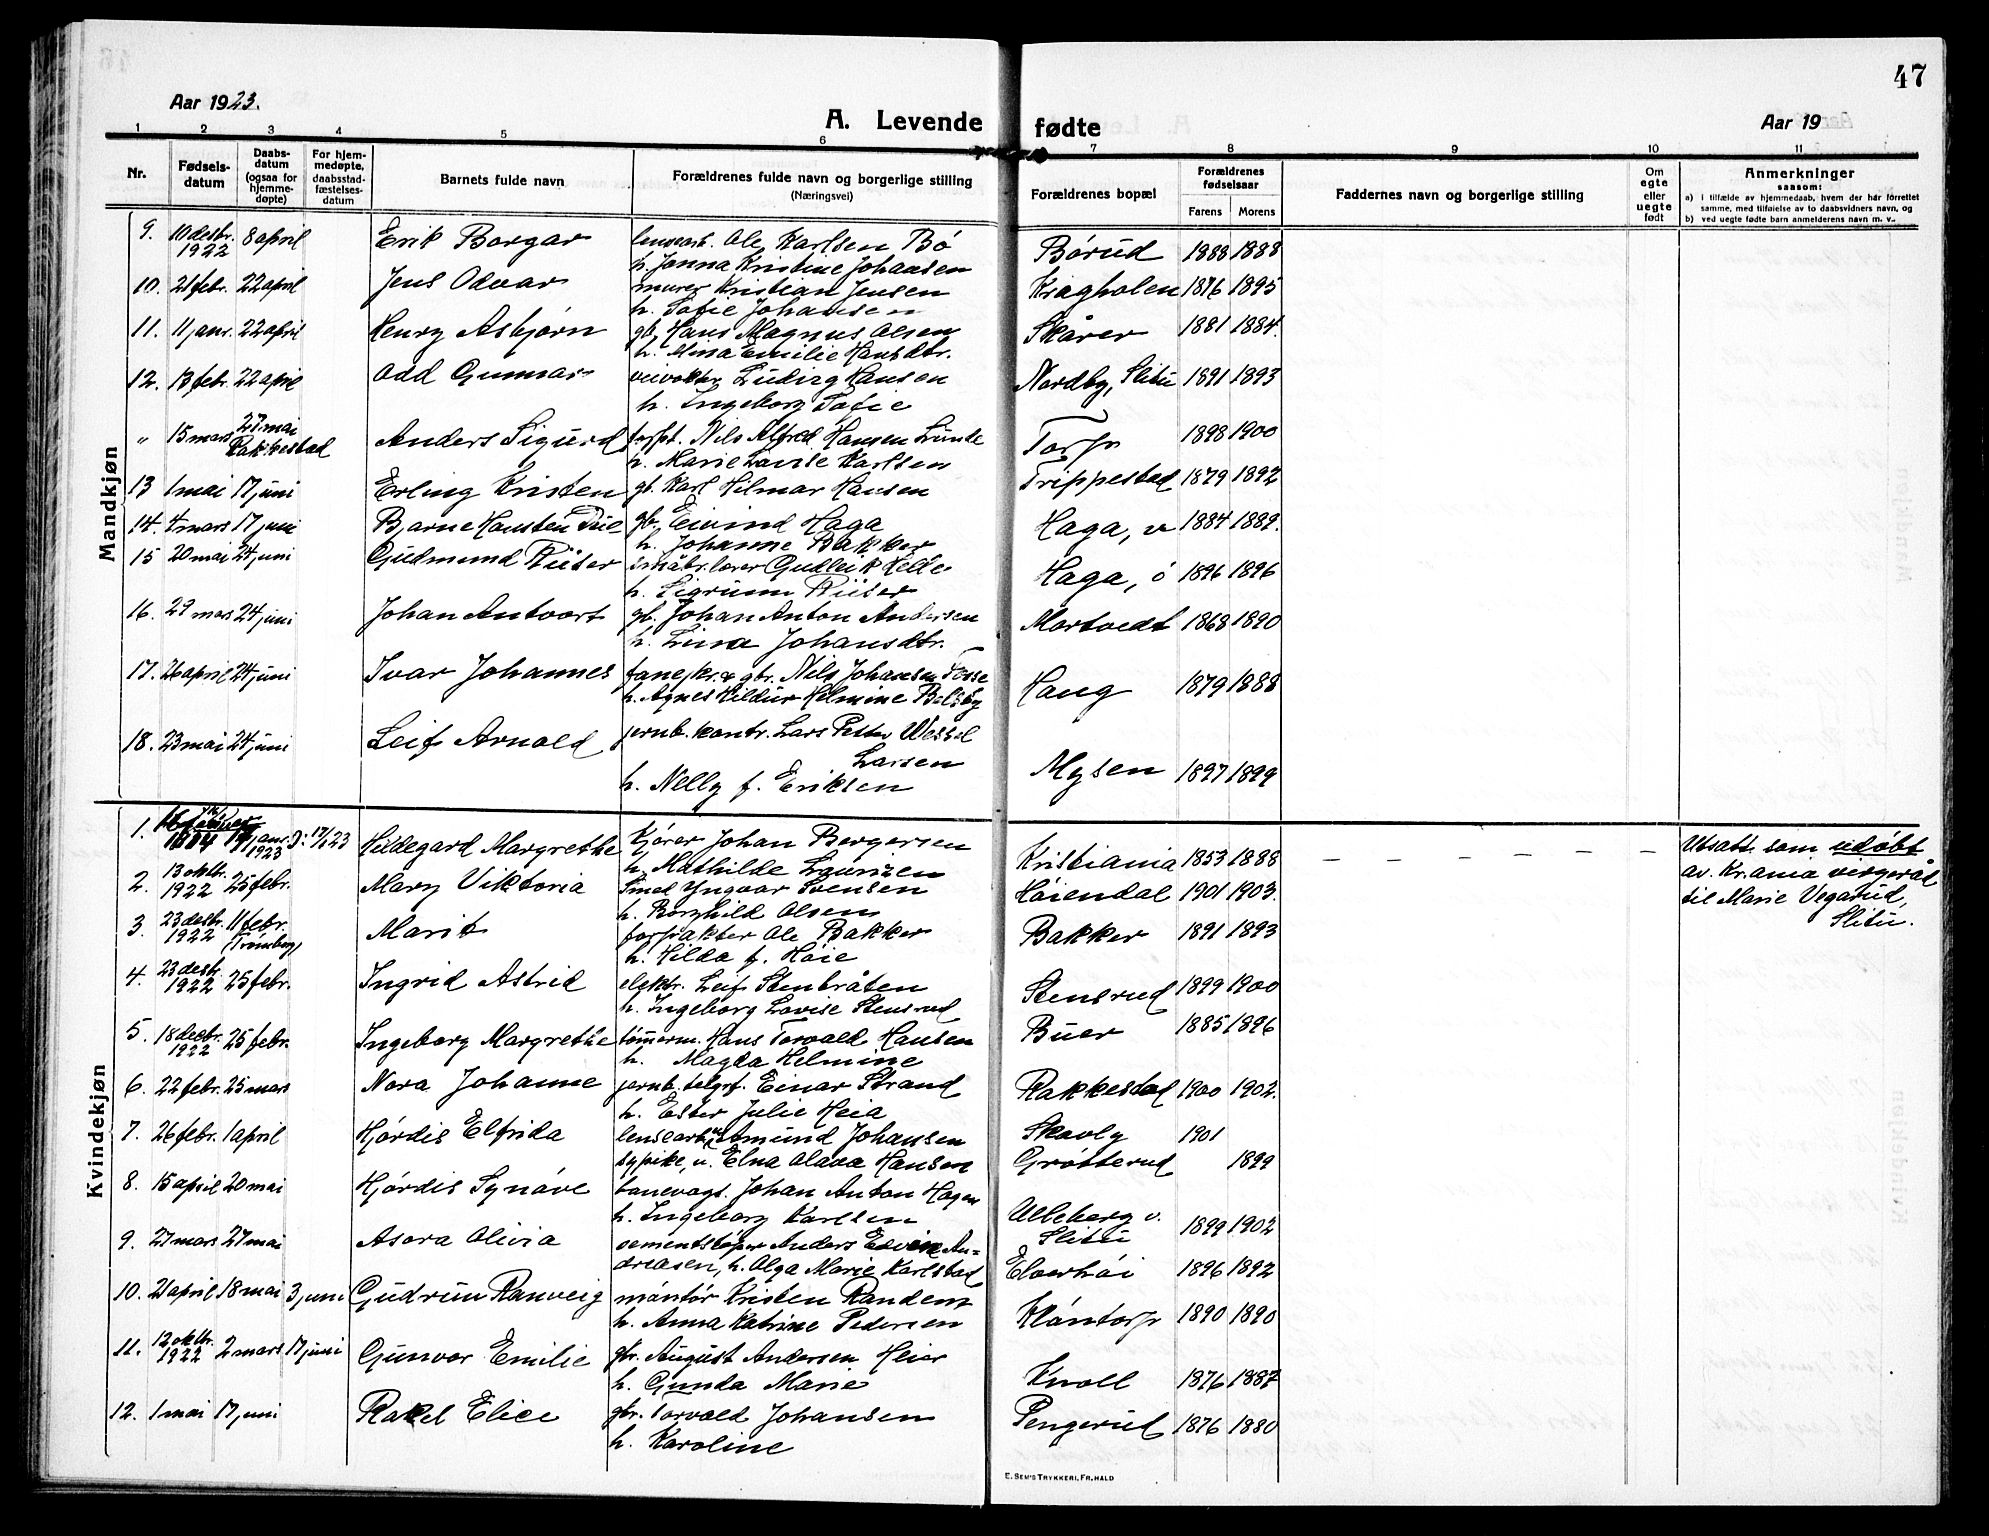 47
Aar 1923.
A. Levende fødte
Aar 19
1 2 3 4 5 6 7 8 9 10 11
Nr.
Fødselsdatum
Daabsdatum (ogsaa for hjemmedøpte)
For hjemmedøpte, daabsstadfæstelsesdatum
Barnets fulde navn
Forældrenes fulde navn og borgerlige stilling
(Næringsvei)
Forældrenes bopæl
Forældrenes fødselsaar
Farens Morens
Faddernes navn og borgerlige stilling
Om egte eller uegte født
Anmerkninger
saasom:
a) i tilfælde av hjemmedaab, hvem der har forrettet samme, med tilføielse av to daabsvidners navn, og
b) ved uegte fødte barn anmelderens navn m. v.
Mandkjøn
9. 10 desbr. 1922 8 april Erik Borgar lensearb. Ole Karlsen Bø Børud 1888 1888
h. Jonna Kristine Johansen
10. 21 febr. 22 april Jens Odvar murer Kristian Jensen Kragholen 1876 1895
h. Sofie Johansen
11. 11 jans. 22 april Henry Asbjørn gb. Hans Magnus Olsen Skårer 1881 1884.
h. Mina Emilie Hansdtr.
12. 13 febr. 22 april Odd Gunnar veivokter Ludvig Hansen Nordby, Slitu 1891 1893
h. Ingeborg Sofie
" 15 mars 27 mai Rakkestad Anders Sigurd forpt. Nils Alfred Hansen Lunde Torp 1898 1900
h. Marie Lovise Karlsen
13 1 mai 17 juni Erling Kristen gb. Karl Hilmar Hansen Trippestad 1879 1892
14. 4 mars 17 juni Bjarne Hansteen gb. Eivind Haga Haga, v 1884 1889.
h. Johanne Bakker
15 20 mai 24 juni Gudmund Riiser småbr. lærer Gudleik Helle Haga, ö 1896 1896
h. Sigrunn Riiser
16. 29 mars 24 juni Johan Antvort gb. Johan Anton Andersen Mortvedt 1868 1890
h. Lina Johansdtr.
17. 26 april 24 juni Ivar Johannes gbr. Nils Johansen Fosse Haug 1879 1888
h. Agnes Hildur Helmine Belsby
18. 23 mai 24 juni Leif Arnold jernb. kontr. Lars Petter Wessel Mysen 1897 1899
Larsen
h. Nelly f. Eriksen
Kvindekjøn
1. 1904 19 jans. 1923 Hildegard Margrethe Kjører Johan Bergersen Kristiania 1853 1888 – – – – – – Utsatt som udøbt
h. Mathilde Lauritzen av Kr.ania vergeråd
til Marie Vegarud,
Slitu.
2. 13 oktbr. 1922 25 febr. Mary Viktoria Smed Yngvar Svensen Høiendal 1901 1903.
h. Borghild Olsen
3. 23 desbr. 1922 11 febr. (Trømborg) Marit forpakter Ole Bakker Bakker 1891 1893
h. Hilda f. Høie
4. 23 desbr. 1922 25 febr. Ingrid Astrid elektr. Leif Stenbråten Stensrud 1899 1900
h. Ingeborg Lovise Stensrud
5. 18 decbr. 1922 25 febr. Ingeborg Margrethe tømmerm. Hans Torvald Hansen Buer 1885 1896
h. Magda Helmine
6. 22 febr. 25 mars Nora Johanne jernb. telgrf. Einar Strand Rakkestad 1900 1902.
h. Ester Julie Heia
7. 26 febr. 1 april Hjørdis Elfrida lensearb. Amund Johansen Skovly 1901
sypike, u. Elna Olava Hansen Grøtterud 1899
8. 15 april 20 mai Hjørdis Synøve banevogt. Johan Anton Hagen Ulleberg v. Slitu 1899 1902
h. Ingeborg Karlsen
9. 27 mars 27 mai Asora Olivia sementstøper Anders Edvin Andreasen, h. Olga Marie Karlstad Elverhøi 1896 1892
10. 21 april 18 mai 3 juni Gudrun Ranveig montør Kristen Randem Kløntorp 1890 1890
h. Anna Katrine Pedersen
11. 12 oktbr. 1922 2 mars 17 juni Gunvor Emilie gbr. August Andersen Heier Knoll 1876 1887
h. Gunda Marie
12. 1 mai 17 juni Rakel Elice gbr. Torvald Johansen Pengerud 1876 1880
h. Karoline
E. SEM'S TRYKKERI, FR.HALD